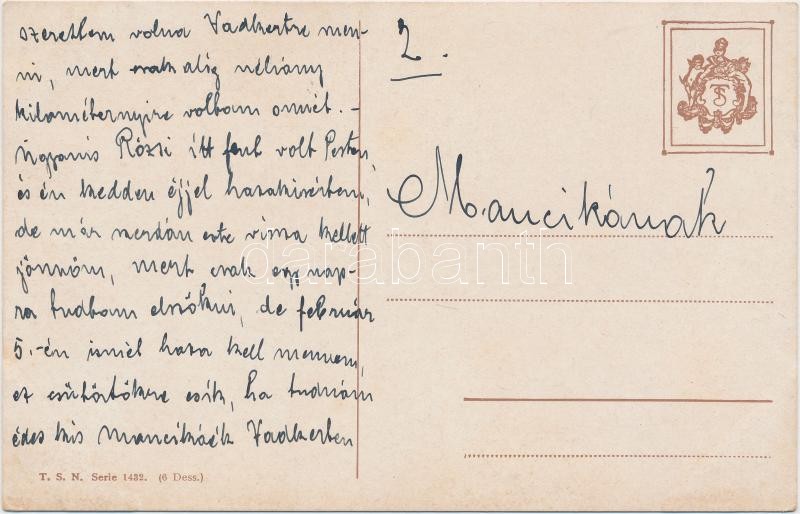 szerettem volna Vadkertre men-
ni, mert csak alig néhány
kilométernyire voltam onnét. -
Ugyanis Rózsi itt fent volt Pesten,
és én kedden éjjel hazakisértem,
de már szerdán este vissza kellett
jönnöm, mert csak egy nap-
ra tudtam elszökni, de február
5.-én ismét haza kell mennem,
ez csütörtökre esik, ha tudnám
édes kis Mancikáék Vadkerten
T. S. N. Serie 1432. (6 Dess.)
2.
TS
Mancikának
darabanth